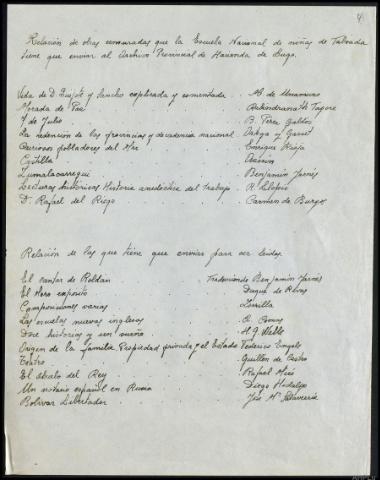 4
Relación de obras censuradas que la Escuela Nacional de niñas de Taboada
tiene que enviar al Archivo Provincial de Hacienda de Lugo.
Vida de D. Quijote y Sancho explicada y comentada. M. de Unamuno
Morada de Paz . . . . Rabindranath Tagore
7 de Julio . . . . B. Pérez Galdós
La redención de las provincias y decadencia nacional . Ortega y Gasset
Curiosos pobladores del Mar . . . Enrique Rioja
Castilla . . . . Azorín
Zumalacarregui . . . . Benjamín Jarnés
Lecturas históricas Historia anecdótica del trabajo . .
D. Rafael del Riego . . . . Carmen de Burgos
Relación de las que tiene que enviar para ser leidas.
El cantar de Roldán . . Traduciendo Benjamín Jarnés
El Moro expósito . . . Duque de Rivas
Composiciones varias . . . Zorrilla
Las escuelas nuevas inglesas . . .
Doce historias y un sueño . . . H. G. Wells
Origen de la familia, Propiedad privada y el Estado Federico Engels
Teatro . . . . Guillén de Castro
El abuelo del Rey . . . Miró
Un notario español en Rusia . . . Diego Hidalgo
Bolívar Libertador . . . José Mª Salaverría